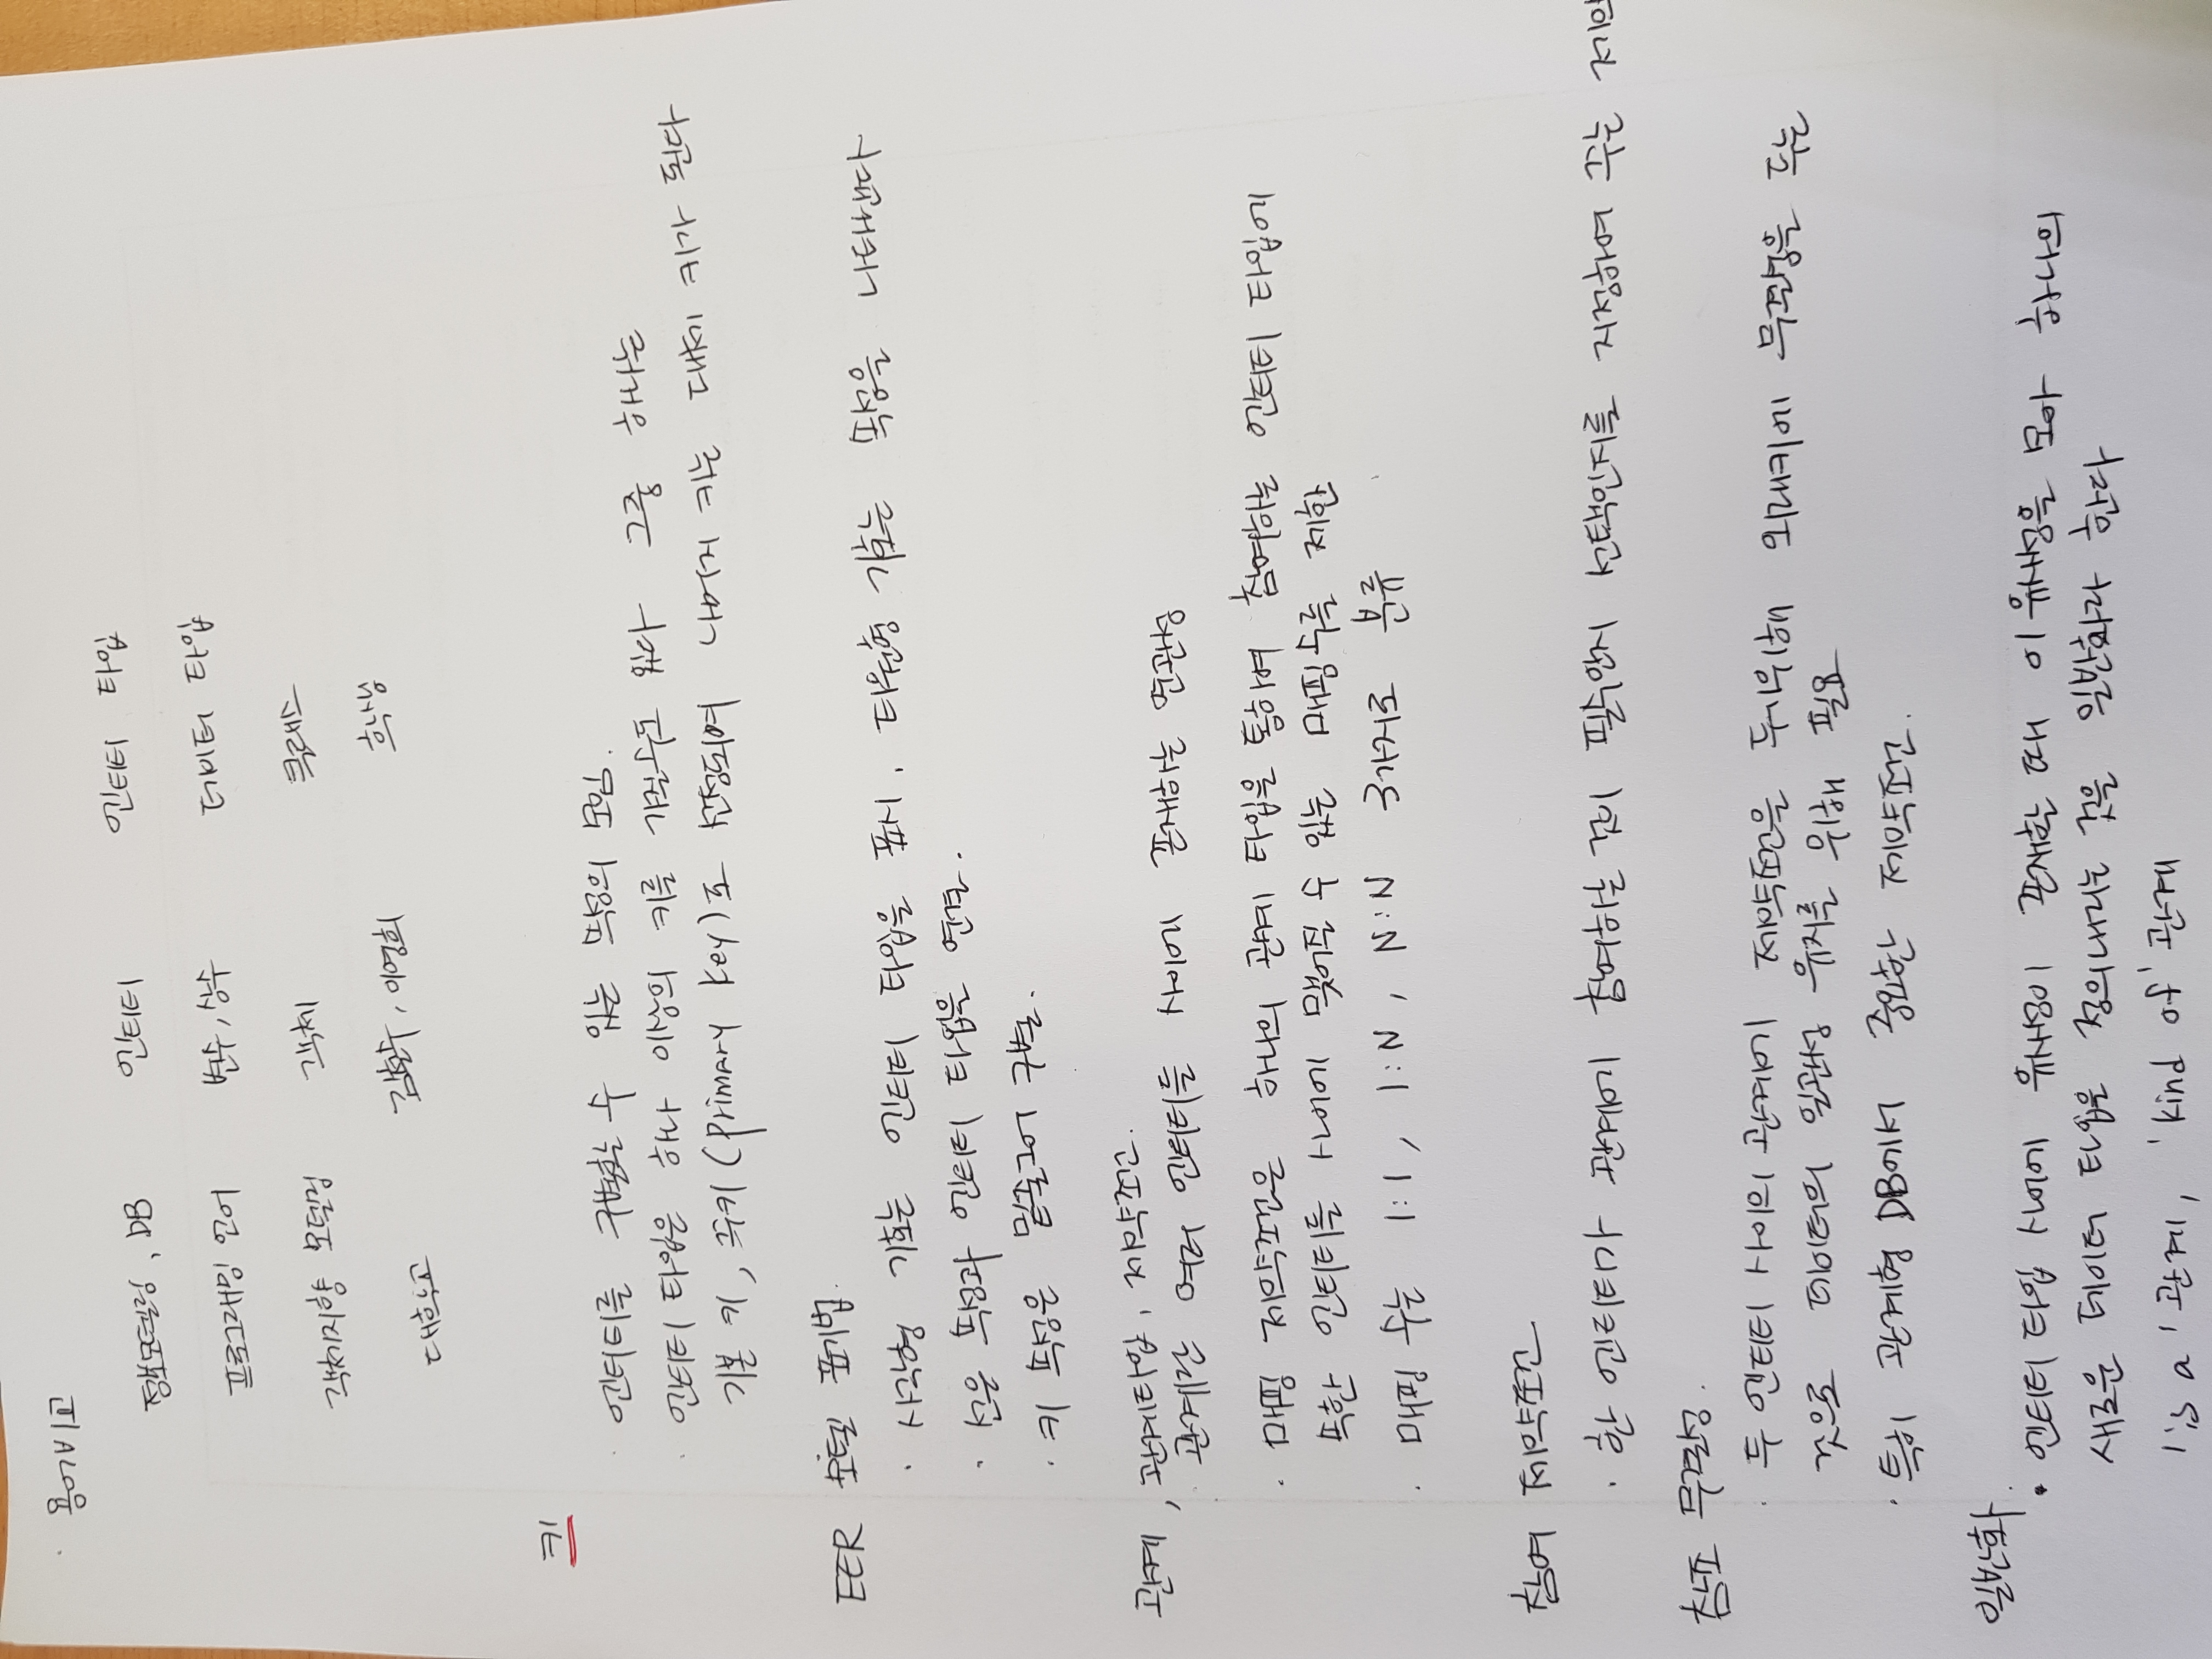 · 용어비교
정보모델링, DB 엔티티 엔티티 타입
프로그래밍 언어 변수, 상수 데이터 타입
객체지향 모델링 객체 클래스
대학교 김철수, 이영희 학생
키
· 엔터티를 구별할 수 있는 속성의 모임.
· 엔티티 타입은 하나 이상의 키를 가질수도 있다 그중 하나는
기본 키, 주키 (primary key)로 선정되며 나머지 키는 대체 키가 된다
EER 모델 표기법.
· 사각형 기호는 엔티티 타입을 표시, 타원형 기호는 속성을 나타낸다
· 선은 속성과 엔티티 타입을 연결.
· 키 속성은 밑줄그어 구별.
관계, 관계타입, 제약조건.
· 관계란 여러 엔티티들 사이에 존재하는 연관성
· 매핑 제약조건은 하나의 관계 타입을 통하여 참여하는 엔티티 타입에
속한 엔티티들 사이에 맺어질 수 있는 매핑수를 제한
· 매핑 수는 1:1, 1:N, N:N 3가지로 분류
참여 제약조건
· 한 엔티티가 관계에 참여하는 것이 필수인지 선택인지를 지정하여 주는 제약
참조 무결성.
· 두 엔티티 사이의 관계에 제약조건을 두기위해 외래키에 무결성을 두는
것으로 데이터의 일관성 유지를 위해 필요
· 특히 관계형 DB에서 중요한 제약조건.
일반화.
· 엔티티 타입 사이에 유사성이 존재할 때 이 유사성을 모아 하나의
새로운 데이터 타입을 정의내리는 것을 일반화라 한다
'is a' 관계, 'kind of' 관계